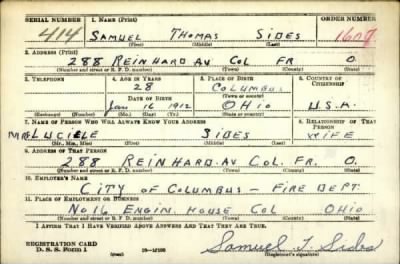 SERIAL NUMBER 1. NAME (Print) ORDER NUMBER
414 SAMUEL THOMAS SIDES
(First) (Middle) (Last)
2. ADDRESS (Print)
288 REINHARD AV COL FR O
(Number and street or R. F. D. number) (Town) (County) (State)
3. TELEPHONE 4. AGE IN YEARS 5. PLACE OF BIRTH 6. COUNTRY OF CITIZENSHIP
28 COLUMBUS
DATE OF BIRTH (Town or county)
JAN 16 1912 OHIO U.S.A.
(Exchange) (Number) (Mo.) (Day) (Yr.) (State or country)
7. NAME OF PERSON WHO WILL ALWAYS KNOW YOUR ADDRESS 8. RELATIONSHIP OF THAT PERSON
MRS LUCIELE SIDES WIFE
(Mr., Mrs., Miss) (First) (Middle) (Last)
9. ADDRESS OF THAT PERSON
288 REINHARD. AV COL. FR. O.
(Number and street or R. F. D. number) (Town) (County) (State)
10. EMPLOYER'S NAME
CITY OF COLUMBUS — FIRE DEPT
11. PLACE OF EMPLOYMENT OR BUSINESS
No 16 ENGIN. HOUSE COL OHIO
(Number and street or R. F. D. number) (Town) (County) (State)
I AFFIRM THAT I HAVE VERIFIED ABOVE ANSWERS AND THAT THEY ARE TRUE.
REGISTRATION CARD
D. S. S. Form 1 Samuel T. Sides
(Registrant's signature)